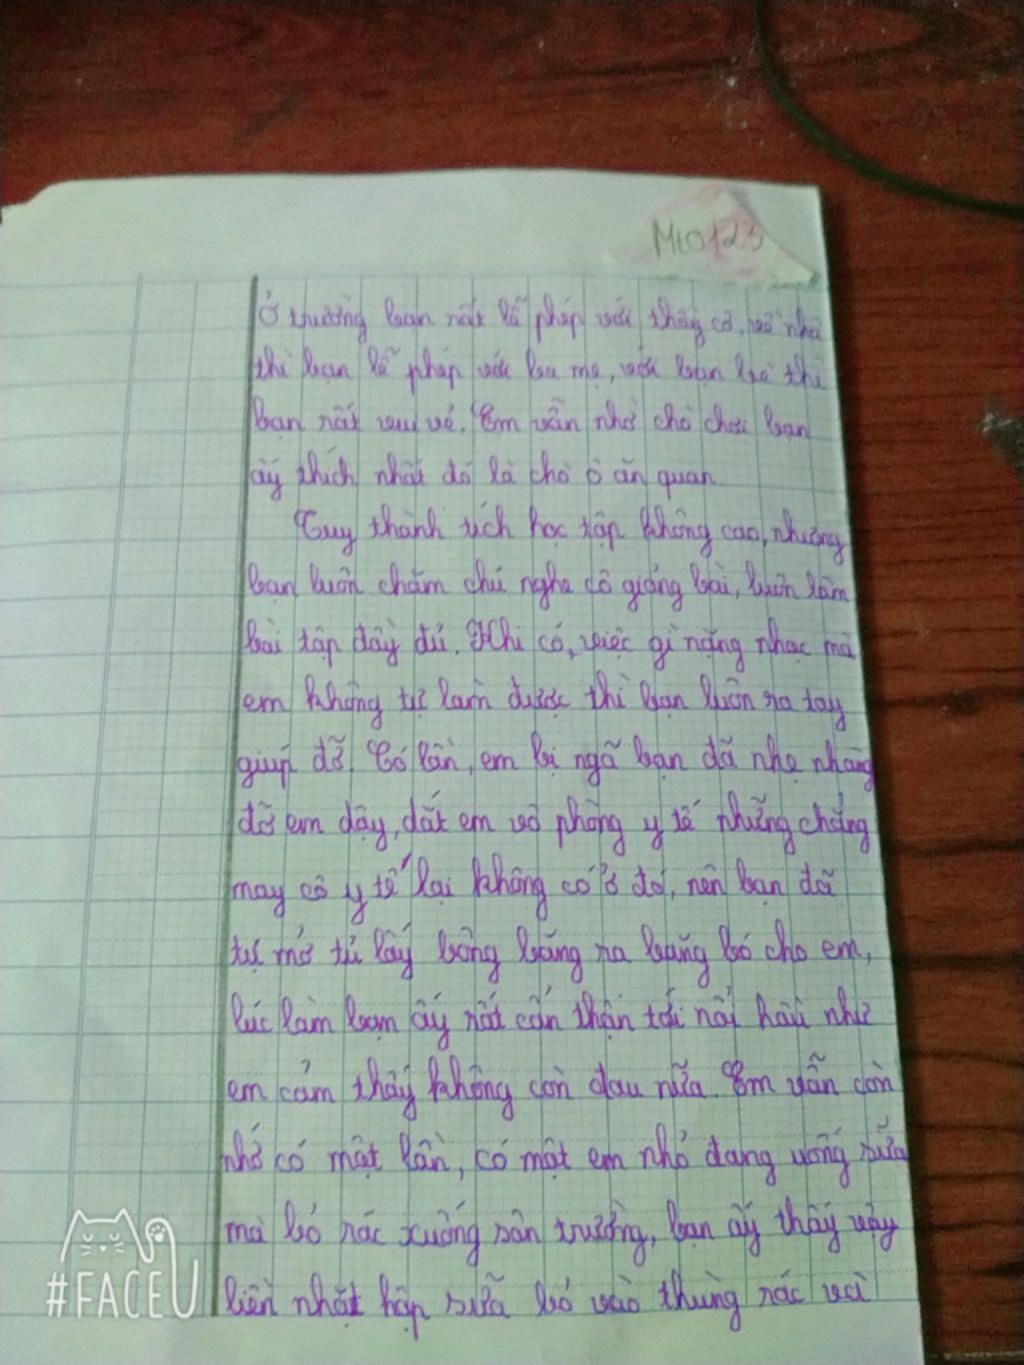 Mt0123
Ở trường bạn rất lễ phép với thầy cô, về nhà
thì bạn lễ phép với ba mẹ, với bạn bè thì
bạn rất vui vẻ. Em vẫn nhớ chò chơi bạn
ấy thích nhất đó là chò ô ăn quan
Tuy thành tích học tập không cao, nhưng
bạn luôn chăm chú nghe cô giảng bài, luôn làm
bài tập đầy đủ. Khi có, việc gì nặng nhọc mà
em không tự làm được thì bạn luôn ra tay
giúp đỡ. Có lần, em bị ngã bạn đã nhẹ nhàng
đỡ em dậy, dắt em vô phòng y tế nhưng chẳng
may cô y tế lại không có ở đó, nên bạn đã
tự mở tủ lấy bông băng ra băng bó cho em,
lúc làm bạn ấy rất cẩn thận tới nổi hầu như
em cảm thấy không còn đau nữa. Em vẫn còn
nhớ có một lần, có một em nhỏ đang uống sữa
mà bỏ rác xuống sân trường, bạn ấy thấy vậy
liền nhặt hộp sữa bỏ vào thùng rác và
#FACEU